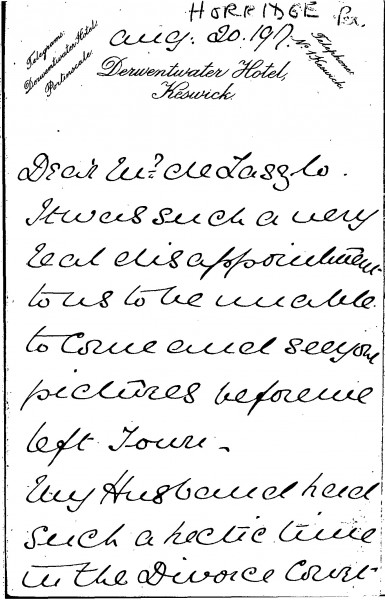 HORRIDGE
Aug: 20. 191
Telegrams
Derwentwater Hotel
Portinscale
Telephone
No. 1 Keswick
Derwentwater Hotel,
Keswick.
Dear Mr. de Laszlo.
It was such a very
real disappointment
to us to be unable
to come and see your
pictures before we
left Town -
My Husband had
such a hectic time
in the Divorce Court